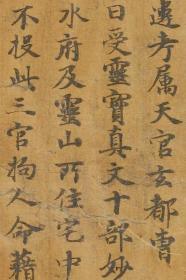 邊考屬天官玄都曹
曰受靈寶真文十部妙
水府及靈山所住宅中
不投此三官拘人命藉